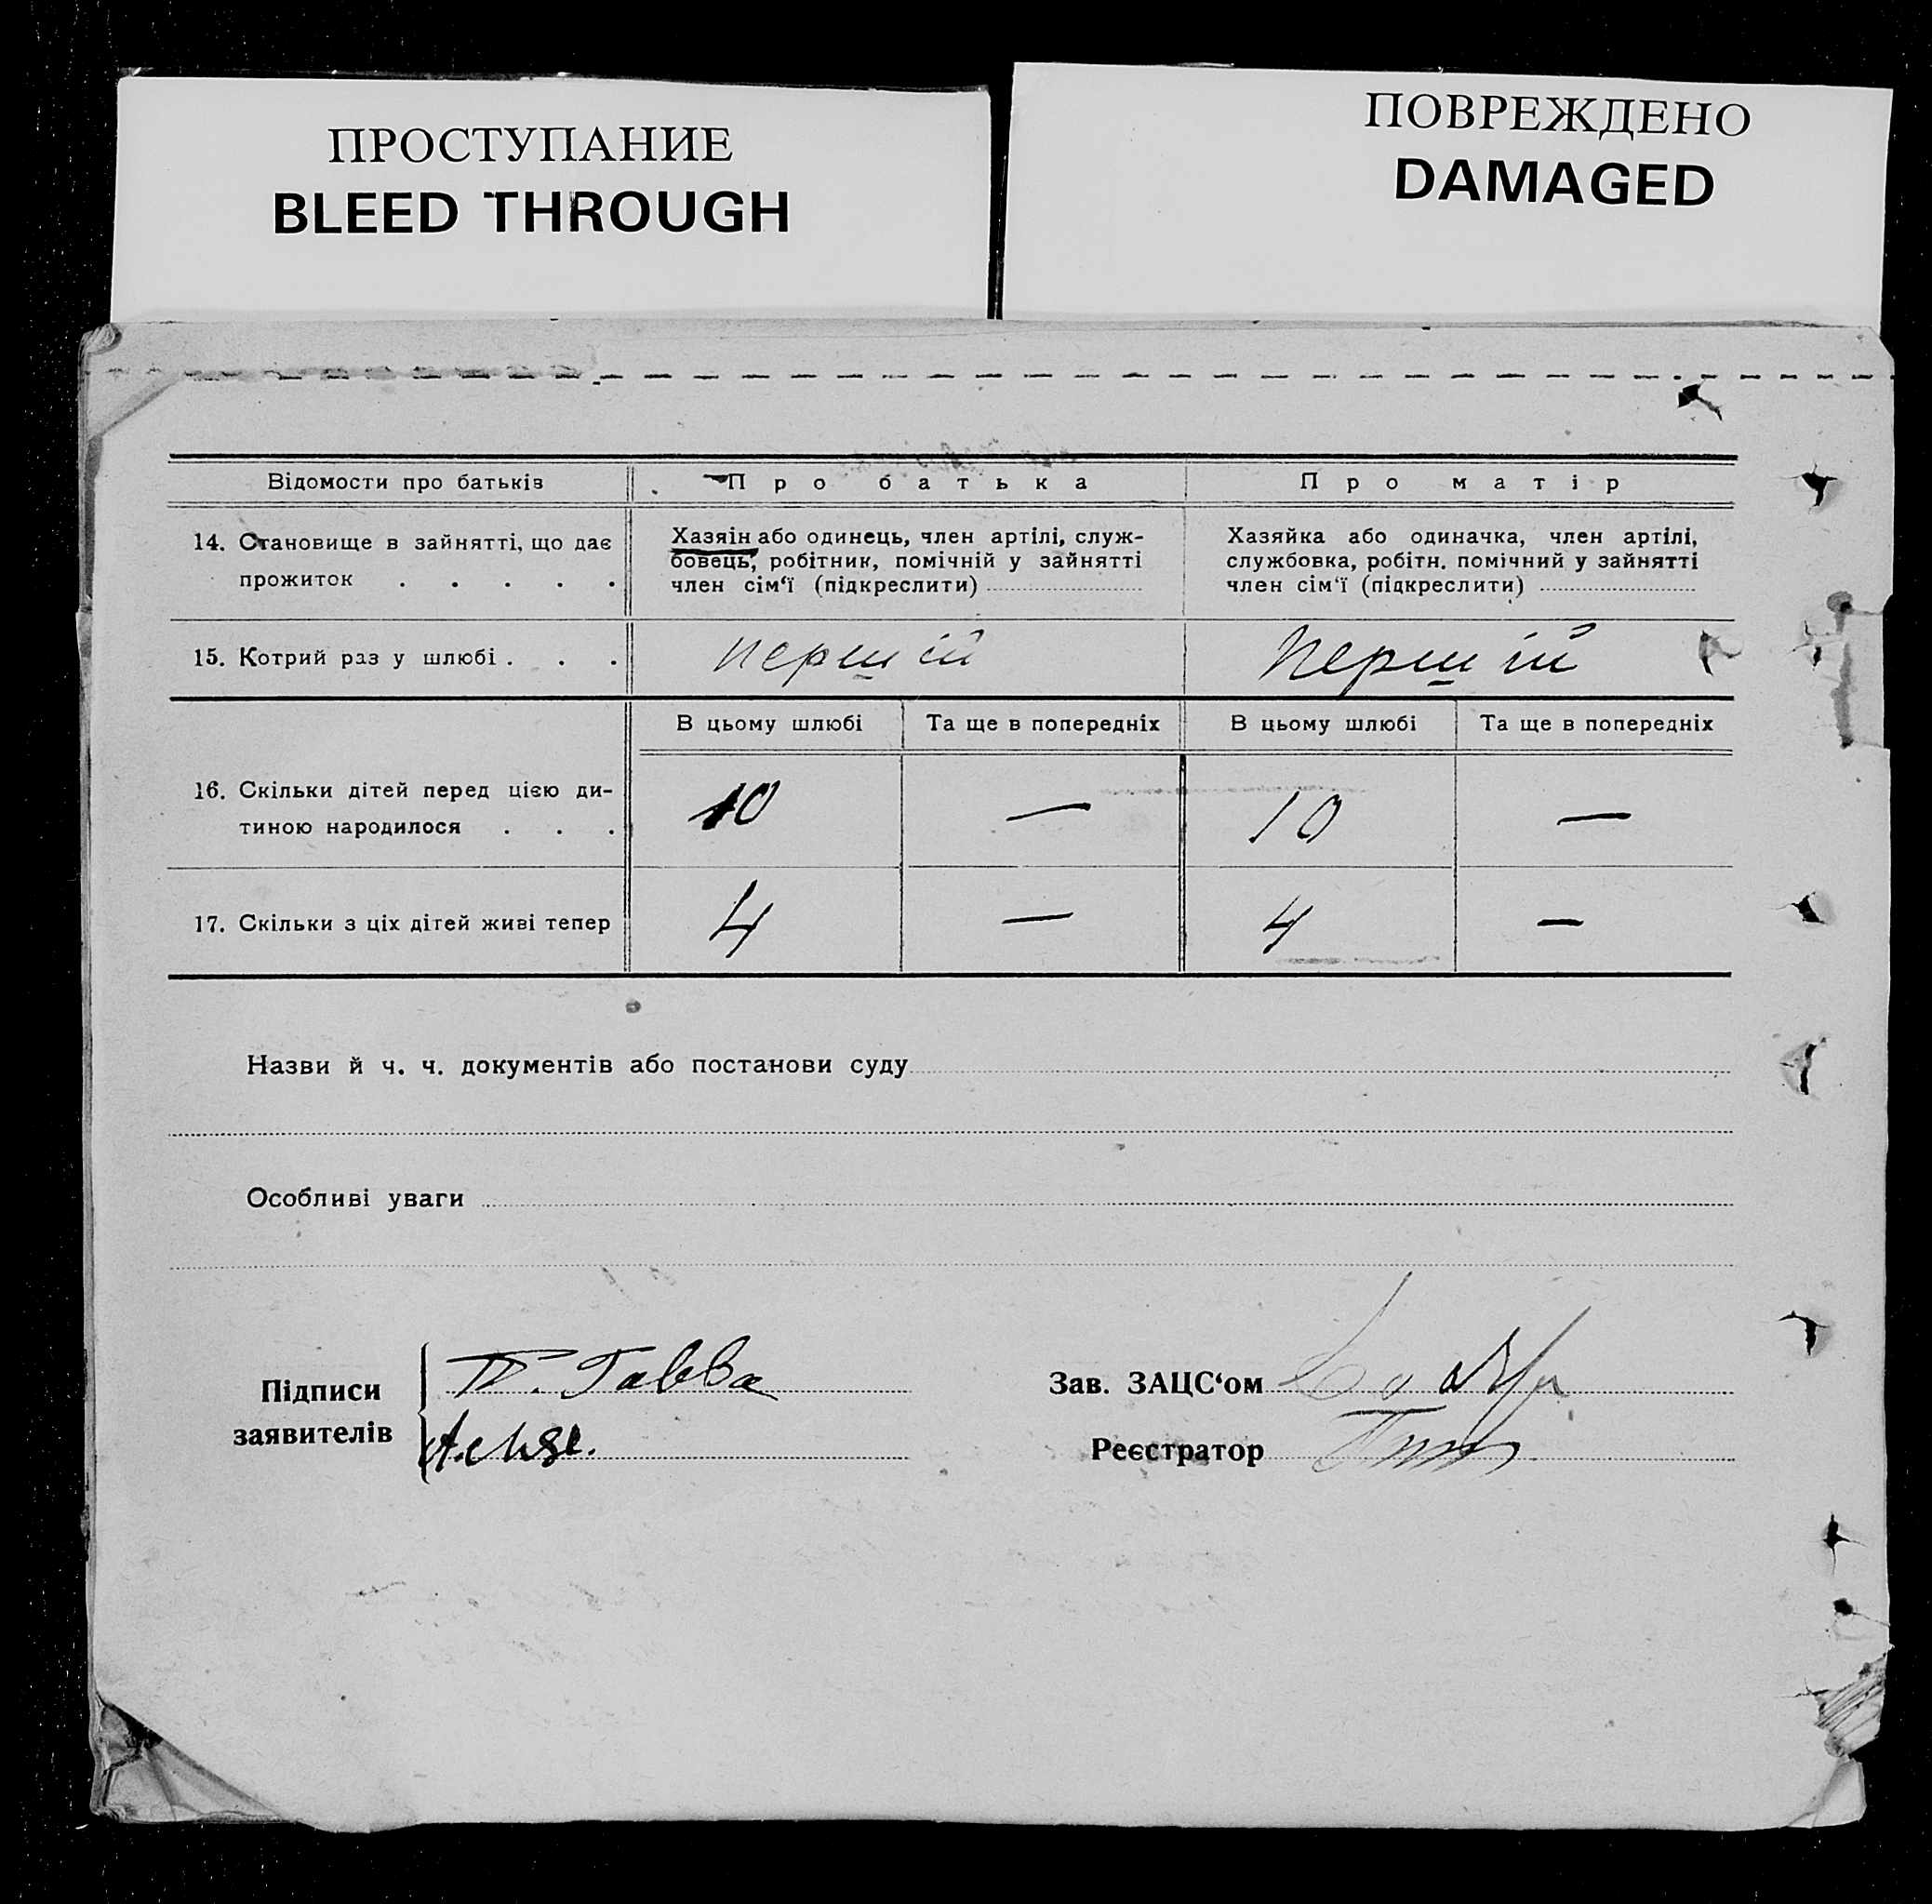 ПРОСТУПАНИЕ
BLEED THROUGH
ПОВРЕЖДЕНО
DAMAGED
Відомости про батьків
Про батька
Про матір
14. Становище в зайнятті, що дає
прожиток . . . . .
Хазяін або одинець, член артілі, служ-
бовець, робітник, помічній у зайнятті
член сім‘ї (підкреслити)
Хазяйка або одиначка, член артілі,
службовка, робітн. помічний у зайнятті
член сім‘ї (підкреслити)
15. Котрий раз у шлюбі . . .
першій
першій
В цьому шлюбі
Та ще в попередніх
В цьому шлюбі
Та ще в попередніх
16. Скільки дітей перед цією ди-
тиною народилося . . .
10 — 10 —
17. Скільки з ціх дітей живі тепер
4 — 4 —
Назви й ч. ч. документів або постанови суду
Особливі уваги
Підписи
заявителів
Гавва
Зав. ЗАЦС‘ом
Реєстратор